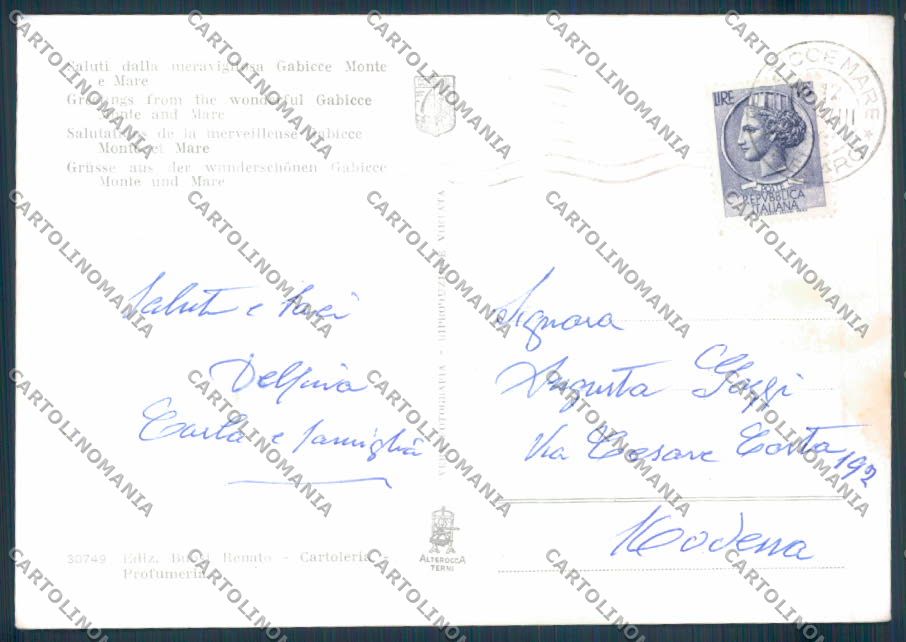 Saluti dalla meravigliosa Gabicce Monte
e Mare
Greetings from the wonderful Gabicce
Monte and Mare
Salutations de la merveilleuse Gabicce
Monte et Mare
Grüsse aus der wunderschönen Gabicce
Monte und Mare
LIRE
POSTE
REPVBBLICA
ITALIANA
Saluti e baci
Delfina
Carla e famiglia
Signora
Augusta
Via Cesare Costa 192
Modena
VERA FOTOGRAFIA - RIPRODUZIONE VIETATA
30749 Ediz. Renato - Cartoleria -
Profumeria
ALTEROCCA
TERNI
CARTOLINOMANIA